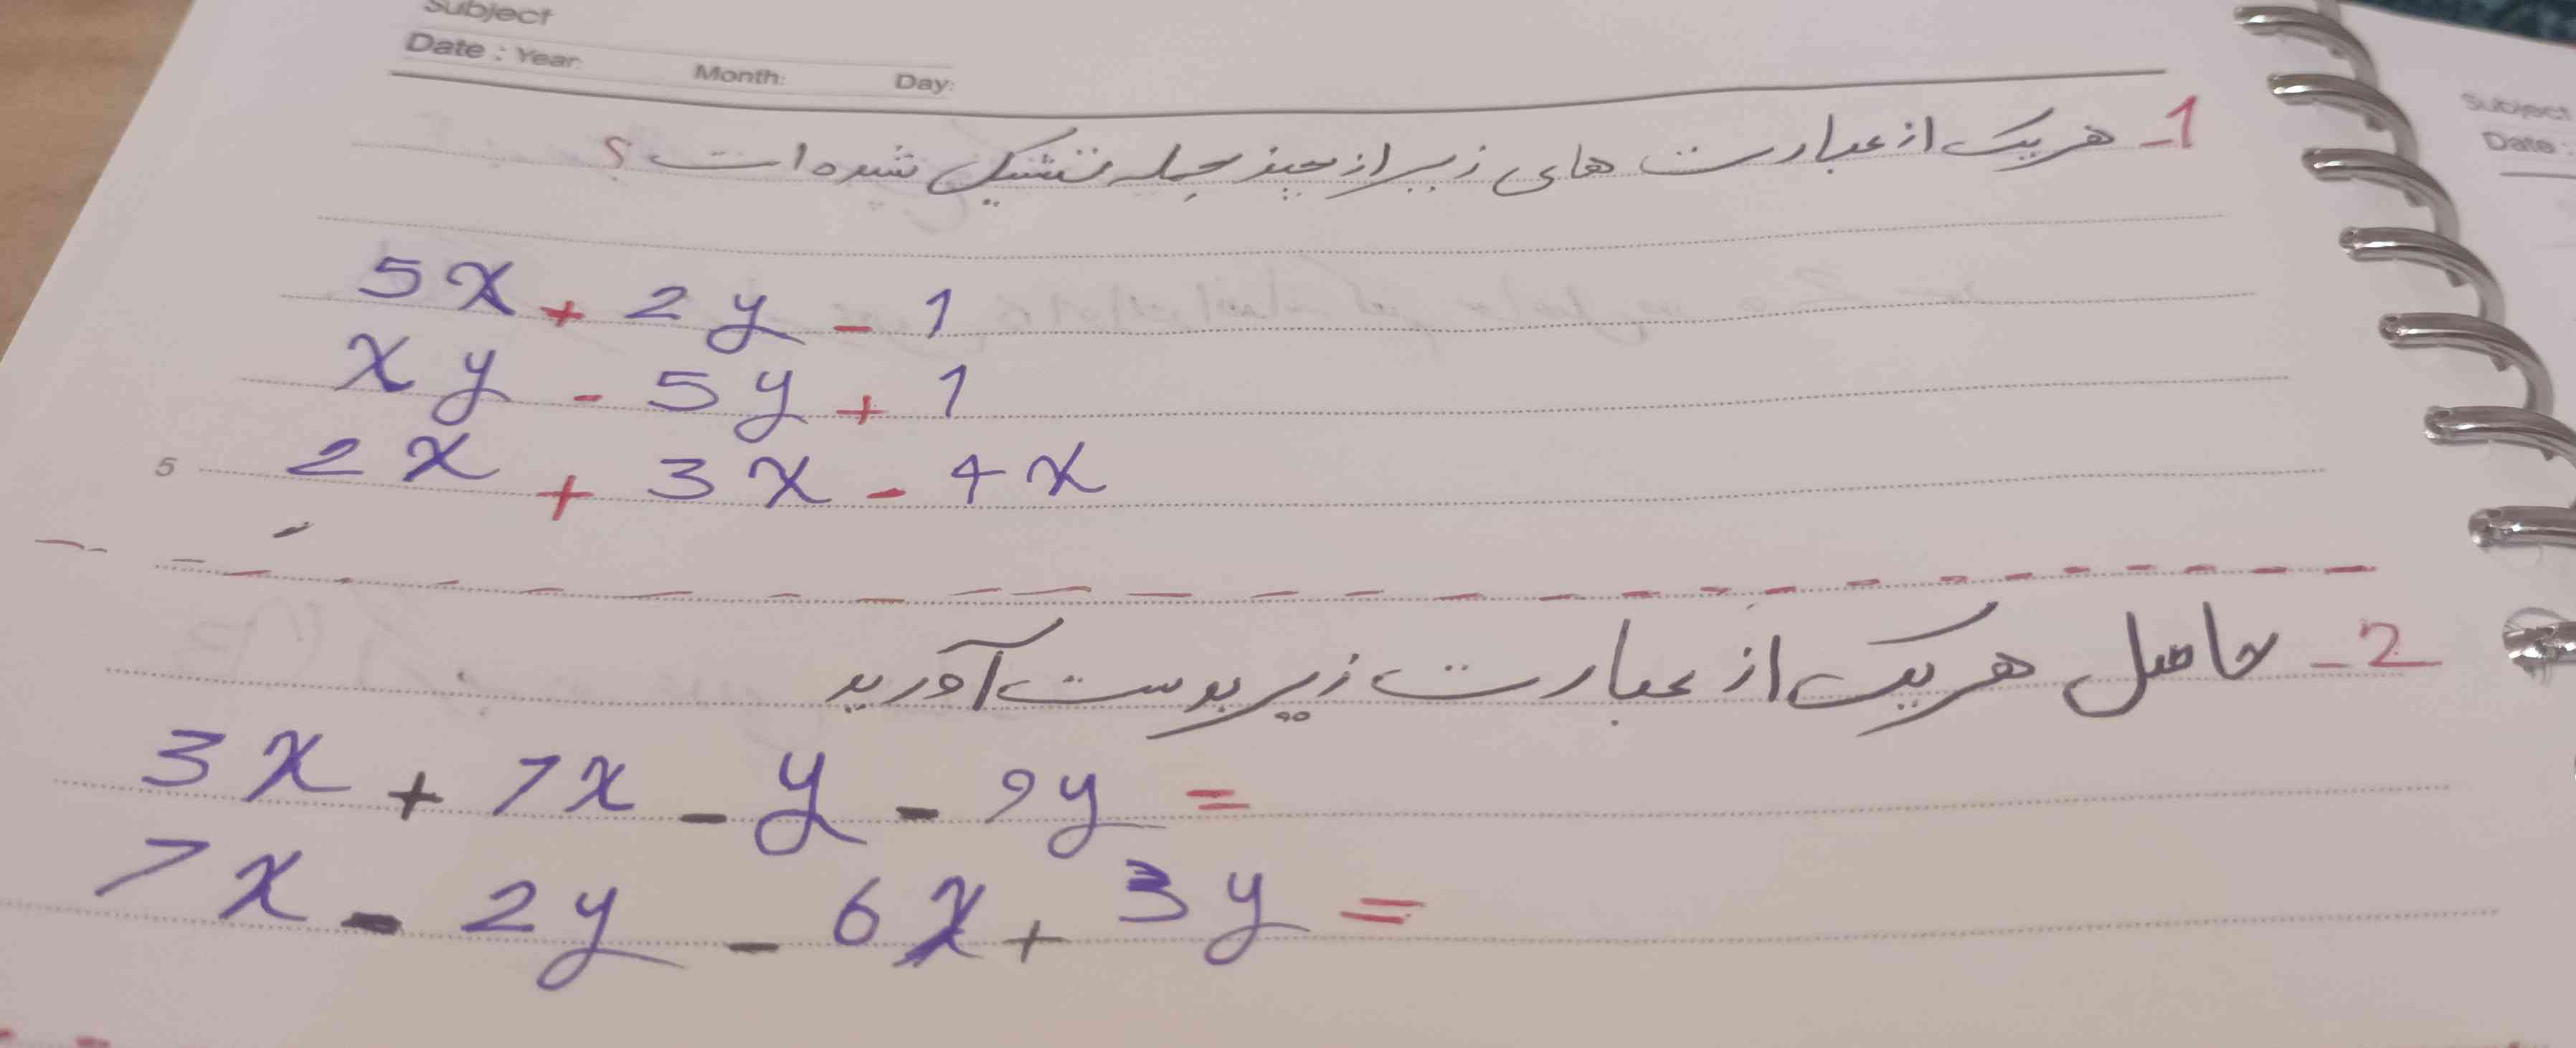 Subject
Date : Year: Month: Day:
1- هر یک از عبارت های زیر از چند جمله تشکیل شده است ؟
5x + 2y - 1
xy - 5y + 1
5
2x + 3x - 4x
2- حاصل هر یک از عبارت زیر بدست آورید
3x + 7x - y - 9y =
7x - 2y - 6x + 3y =
Subject
Date :